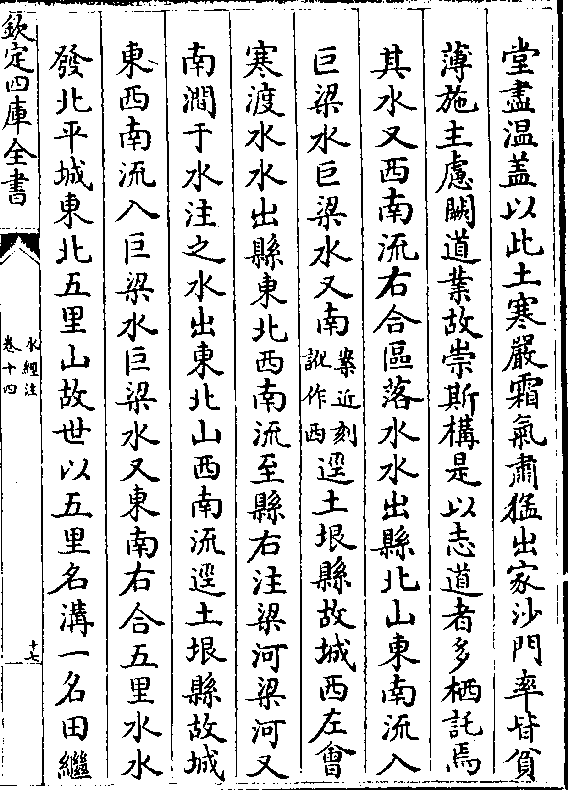 堂盡温葢以此土寒嚴霜氣肅猛出家沙門率皆貧
薄施主慮闕道業故崇斯構是以志道者多栖託焉
其水又西南流右合區落水水出縣北山東南流入
巨梁水巨梁水又南案近刻訛作西逕土垠縣故城西左會
寒渡水水出縣東北西南流至縣右注梁河梁河又
南澗于水注之水出東北山西南流逕土垠縣故城
東西南流入巨梁水巨梁水又東南右合五里水水
發北平城東北五里山故世以五里名溝一名田繼
欽定四庫全書
水經注
卷十四
十七